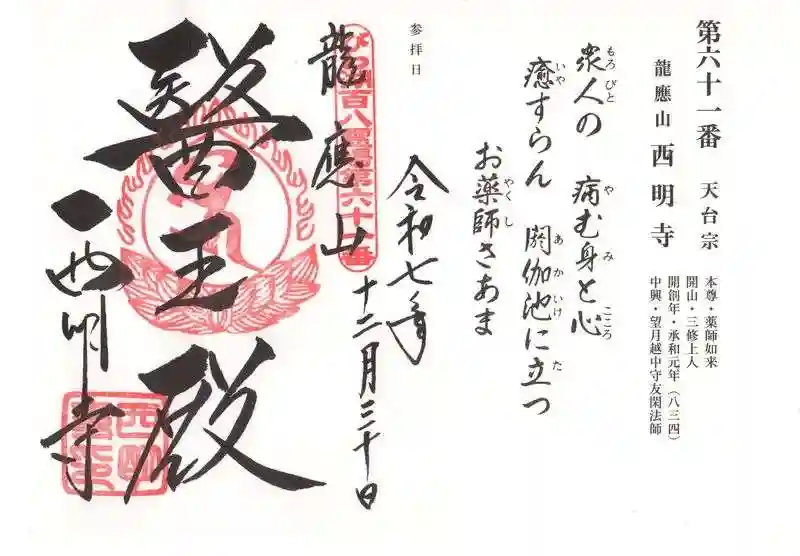 第六十一番 天台宗
龍應山 西明寺
本尊・薬師如来
開山・三修上人
開創年・承和元年(八三四)
中興・望月越中守友閑法師
衆人の 病む身と心
もろびと や み こころ
癒すらん 閼伽池に立つ
いや あかいけ た
お薬師さあま
やくし
参拝日
令和七年
十二月三十日
龍應山
醫王殿
西明寺
百八霊場第六十一番